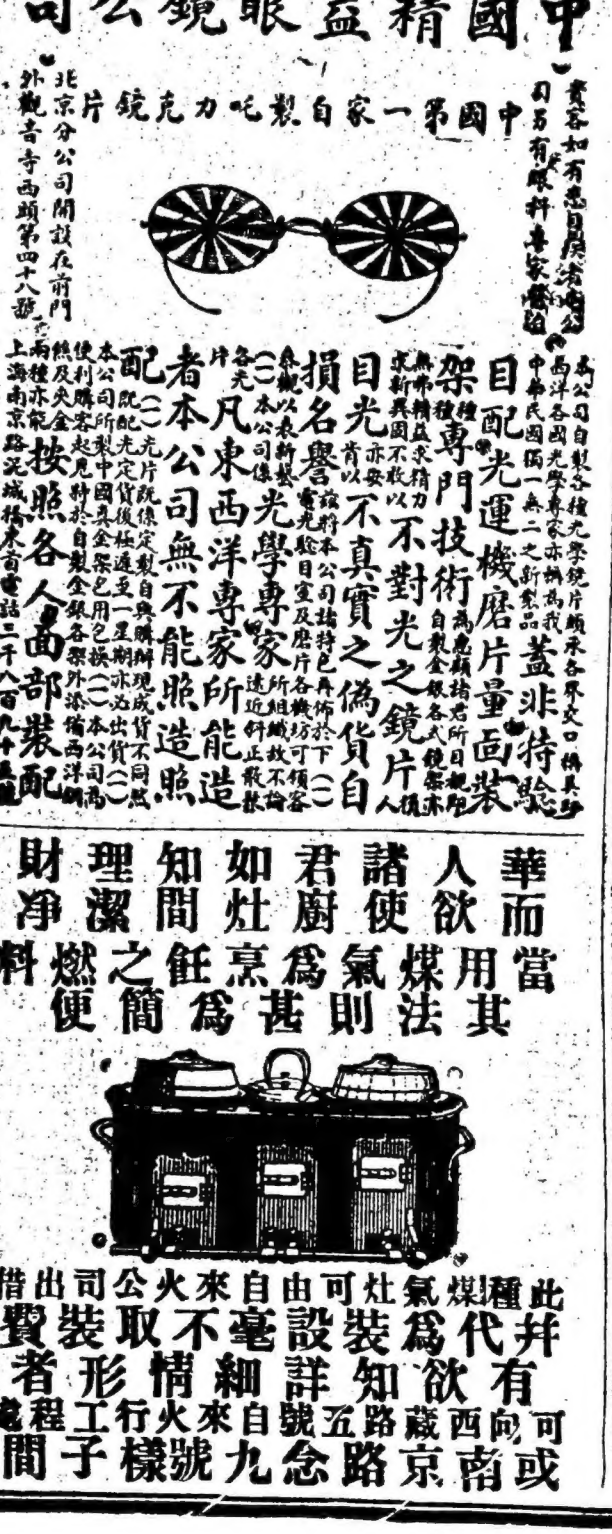 中國精益眼鏡公司
中國第一家自製吒力克鏡片
貴客如有患目疾者
司另有眼科專家
北京分公司開設在前門
外觀音寺西頭第四十八號
本公司自製各種光學鏡片頗承各界交口稱美
西洋各國光學專家亦稱為我
中華民國獨一無二之新製品
蓋非特驗
目配光運機磨片量面裝
架種種專門技術
為惠顧諸君所目覩即
自製金銀各式鏡架亦
無弗精益求精力
求新異固不敢以
不對光之鏡片
人目光
亦安肯以
不真實之偽貨自
損名譽
茲將本公司諸特色再佈於下(一)
電光驗目室及磨片各機坊可領客
參觀以表新藝
(一)本公司係
光學專家
所組織故不論
遠近斜正散
各光片
凡東西洋專家所能造
者本公司無不能照造照
配(一)光片既係定製自與購辦現成貨不同然
既配光定貨後極遲至一星期亦必出貨(一)
本公司所製中國真金架包用包換(一)本公司為
便利購客起見對於自製金銀各架外添備西洋
及夾金
兩種亦能
按照各人面部裝配
上海南京路泥城橋東首電話三千八百九十五號
華人諸君如知理財
而欲使廚灶間潔净
當用煤氣爲烹飪之燃料
其法則甚爲簡便
此種煤氣灶可由自來火公司出借
幷代爲裝設毫不取裝費
有欲知詳細情形者
可向西藏路五號自來火行工程處
或南京路念九號樣子間